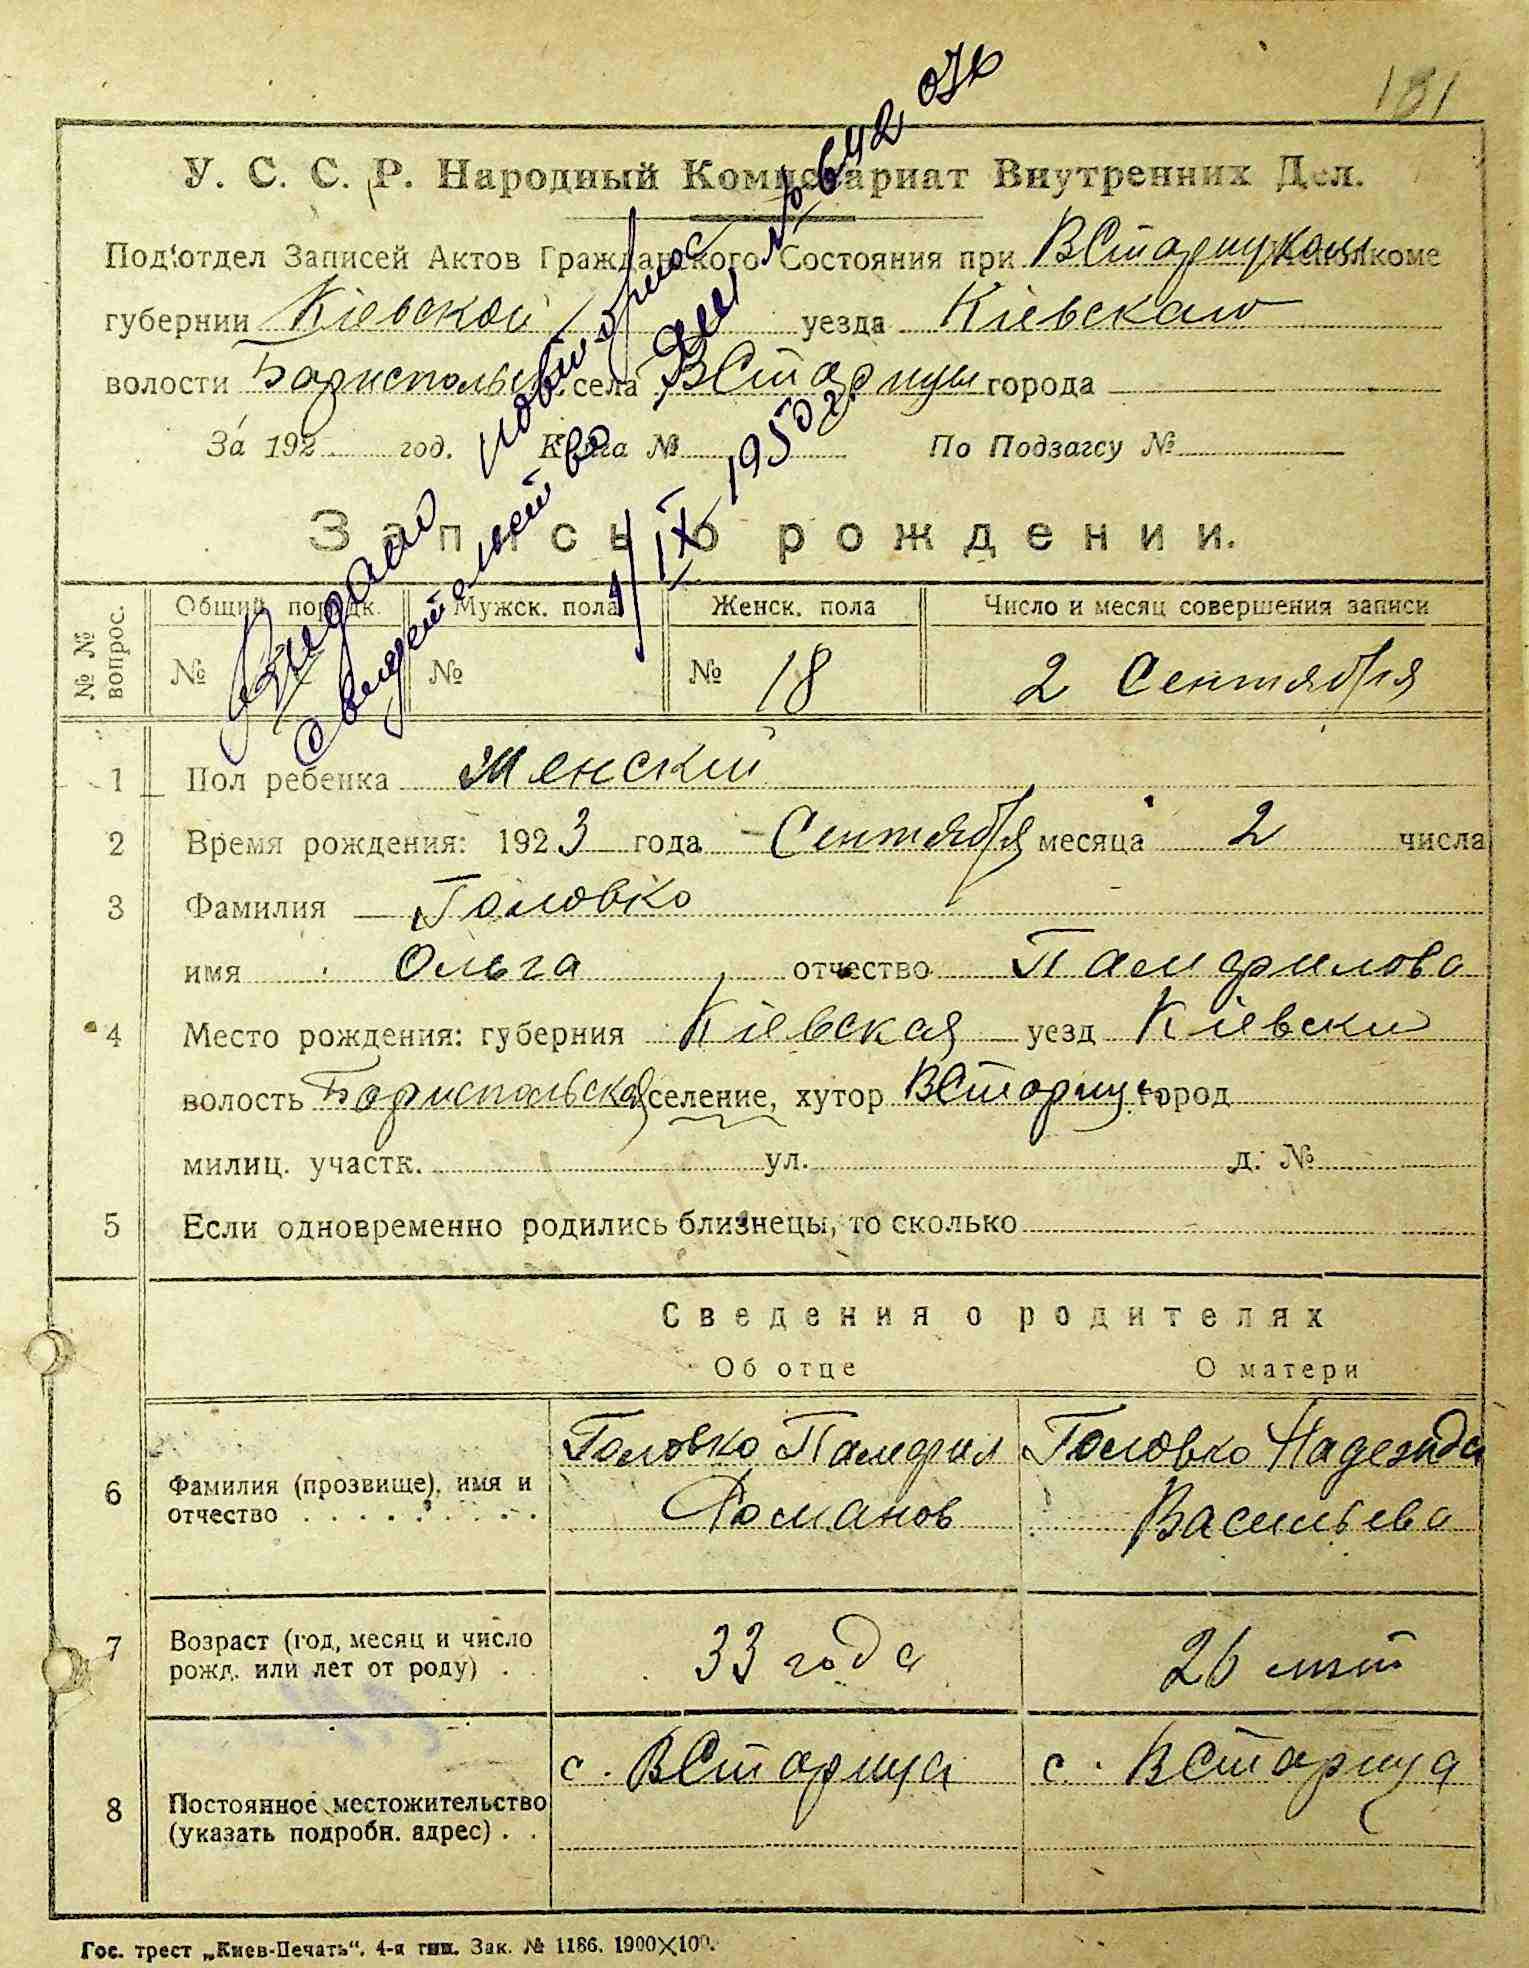 181
У. С. С. Р. Народный Комиссариат Внутренних Дел.
Под'отдел Записей Актов Гражданского Состояния при ВСтарицком Исполкоме
губернии Кіевской уезда Кіевскаго
волости Бориспольск. села ВСтарицы города
За 192 год. Книга № По Подзагсу №
Запись о рождении.
Видано повторнос
свидетельство № 642 076
4/IX 1950 г.
№№ вопрос. Общий порядк. Мужск. пола Женск. пола Число и месяц совершения записи
№ № № 18 2 Сентября
1 Пол ребенка женский
2 Время рождения: 1923 года Сентября месяца 2 числа
3 Фамилия Головко
имя Ольга отчество Памфилова
4 Место рождения: губерния Кіевская уезд Кіевски
волость Бориспольская селение, хутор ВСтарицы город
милиц. участк. ул. д. №
5 Если одновременно родились близнецы, то сколько
Сведения о родителях
Об отце О матери
6 Фамилия (прозвище), имя и отчество
Головко Памфил Головко Надежда
Романов Васильева
7 Возраст (год, месяц и число рожд. или лет от роду) 33 года 26 лет
8 Постоянное местожительство (указать подробн. адрес) с. ВСтарица с. ВСтарица
Гос. трест „Киев-Печать“. 4-я тип. Зак. № 1186. 1900×100.